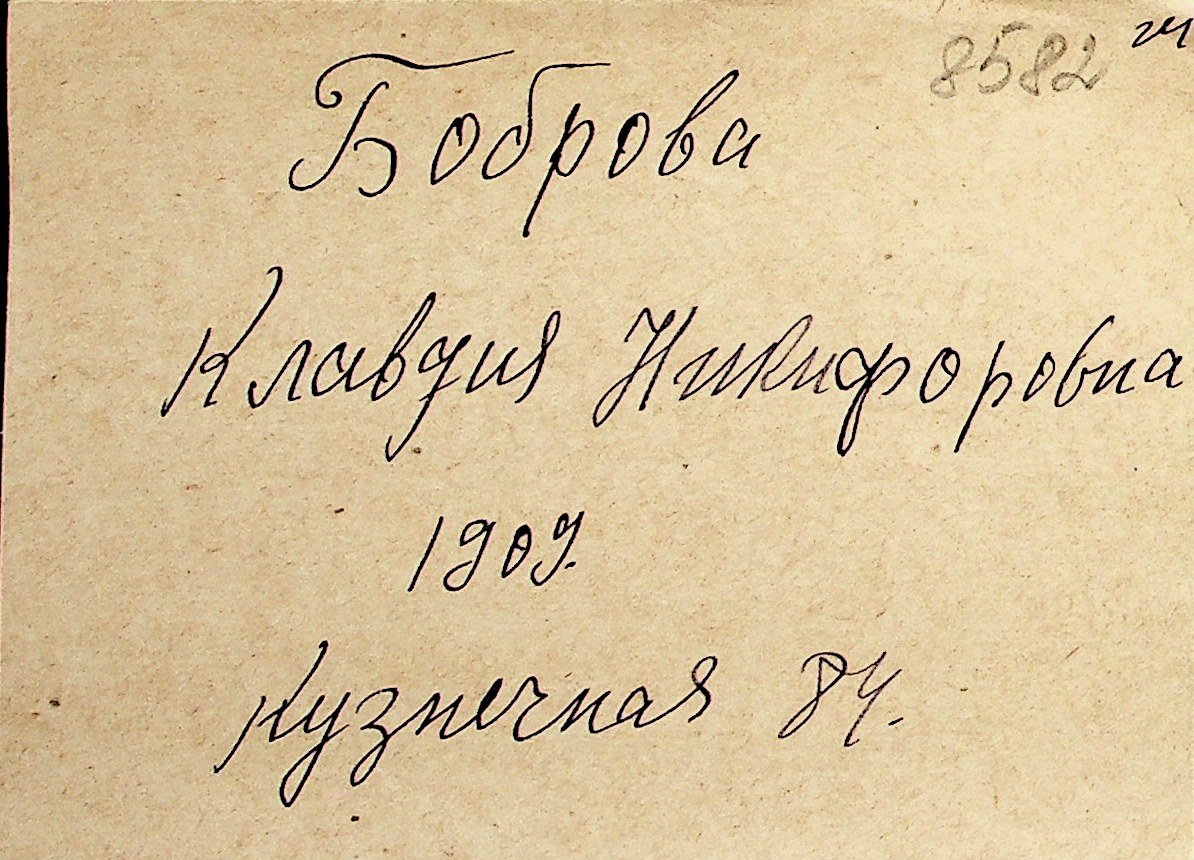 8582
Боброва
Клавдия Никифоровна
1909.
Кузнечная 84.